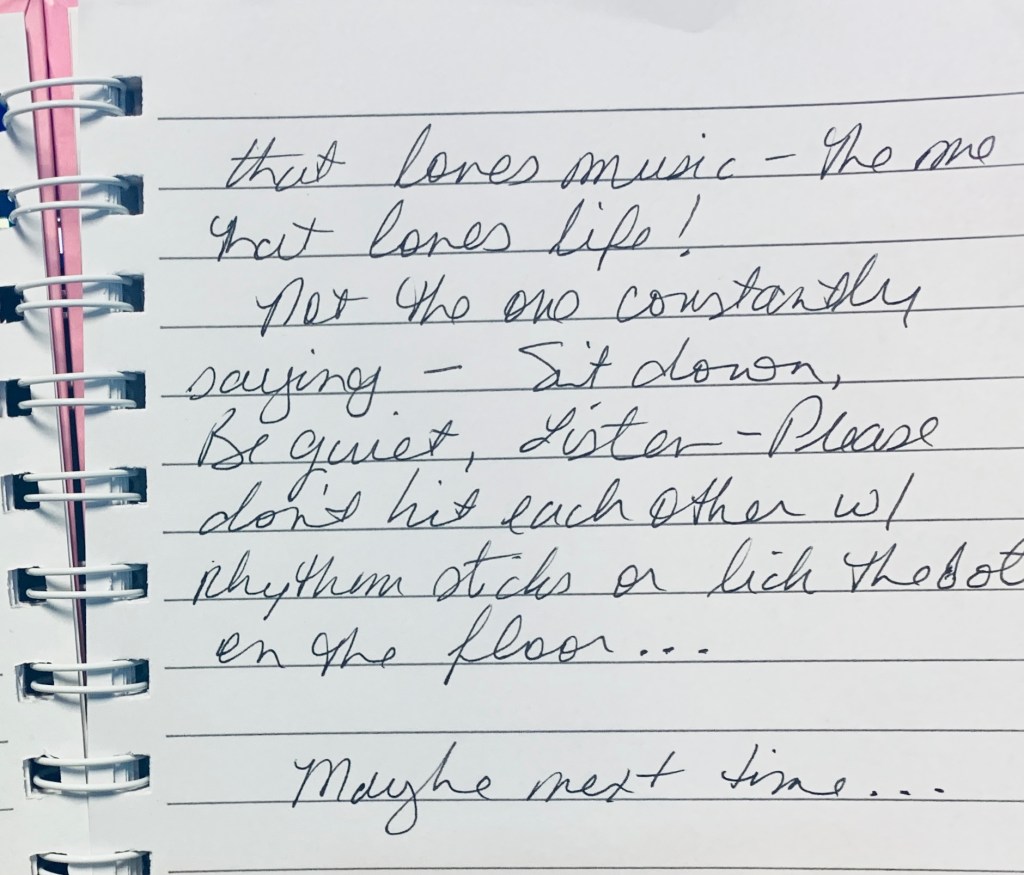 that loves music - the me
that loves life!
Not the one constantly
saying - Sit down,
Be quiet, Listen - Please
don't hit each other w/
rhythm sticks or lick the dot
on the floor...
Maybe next time...